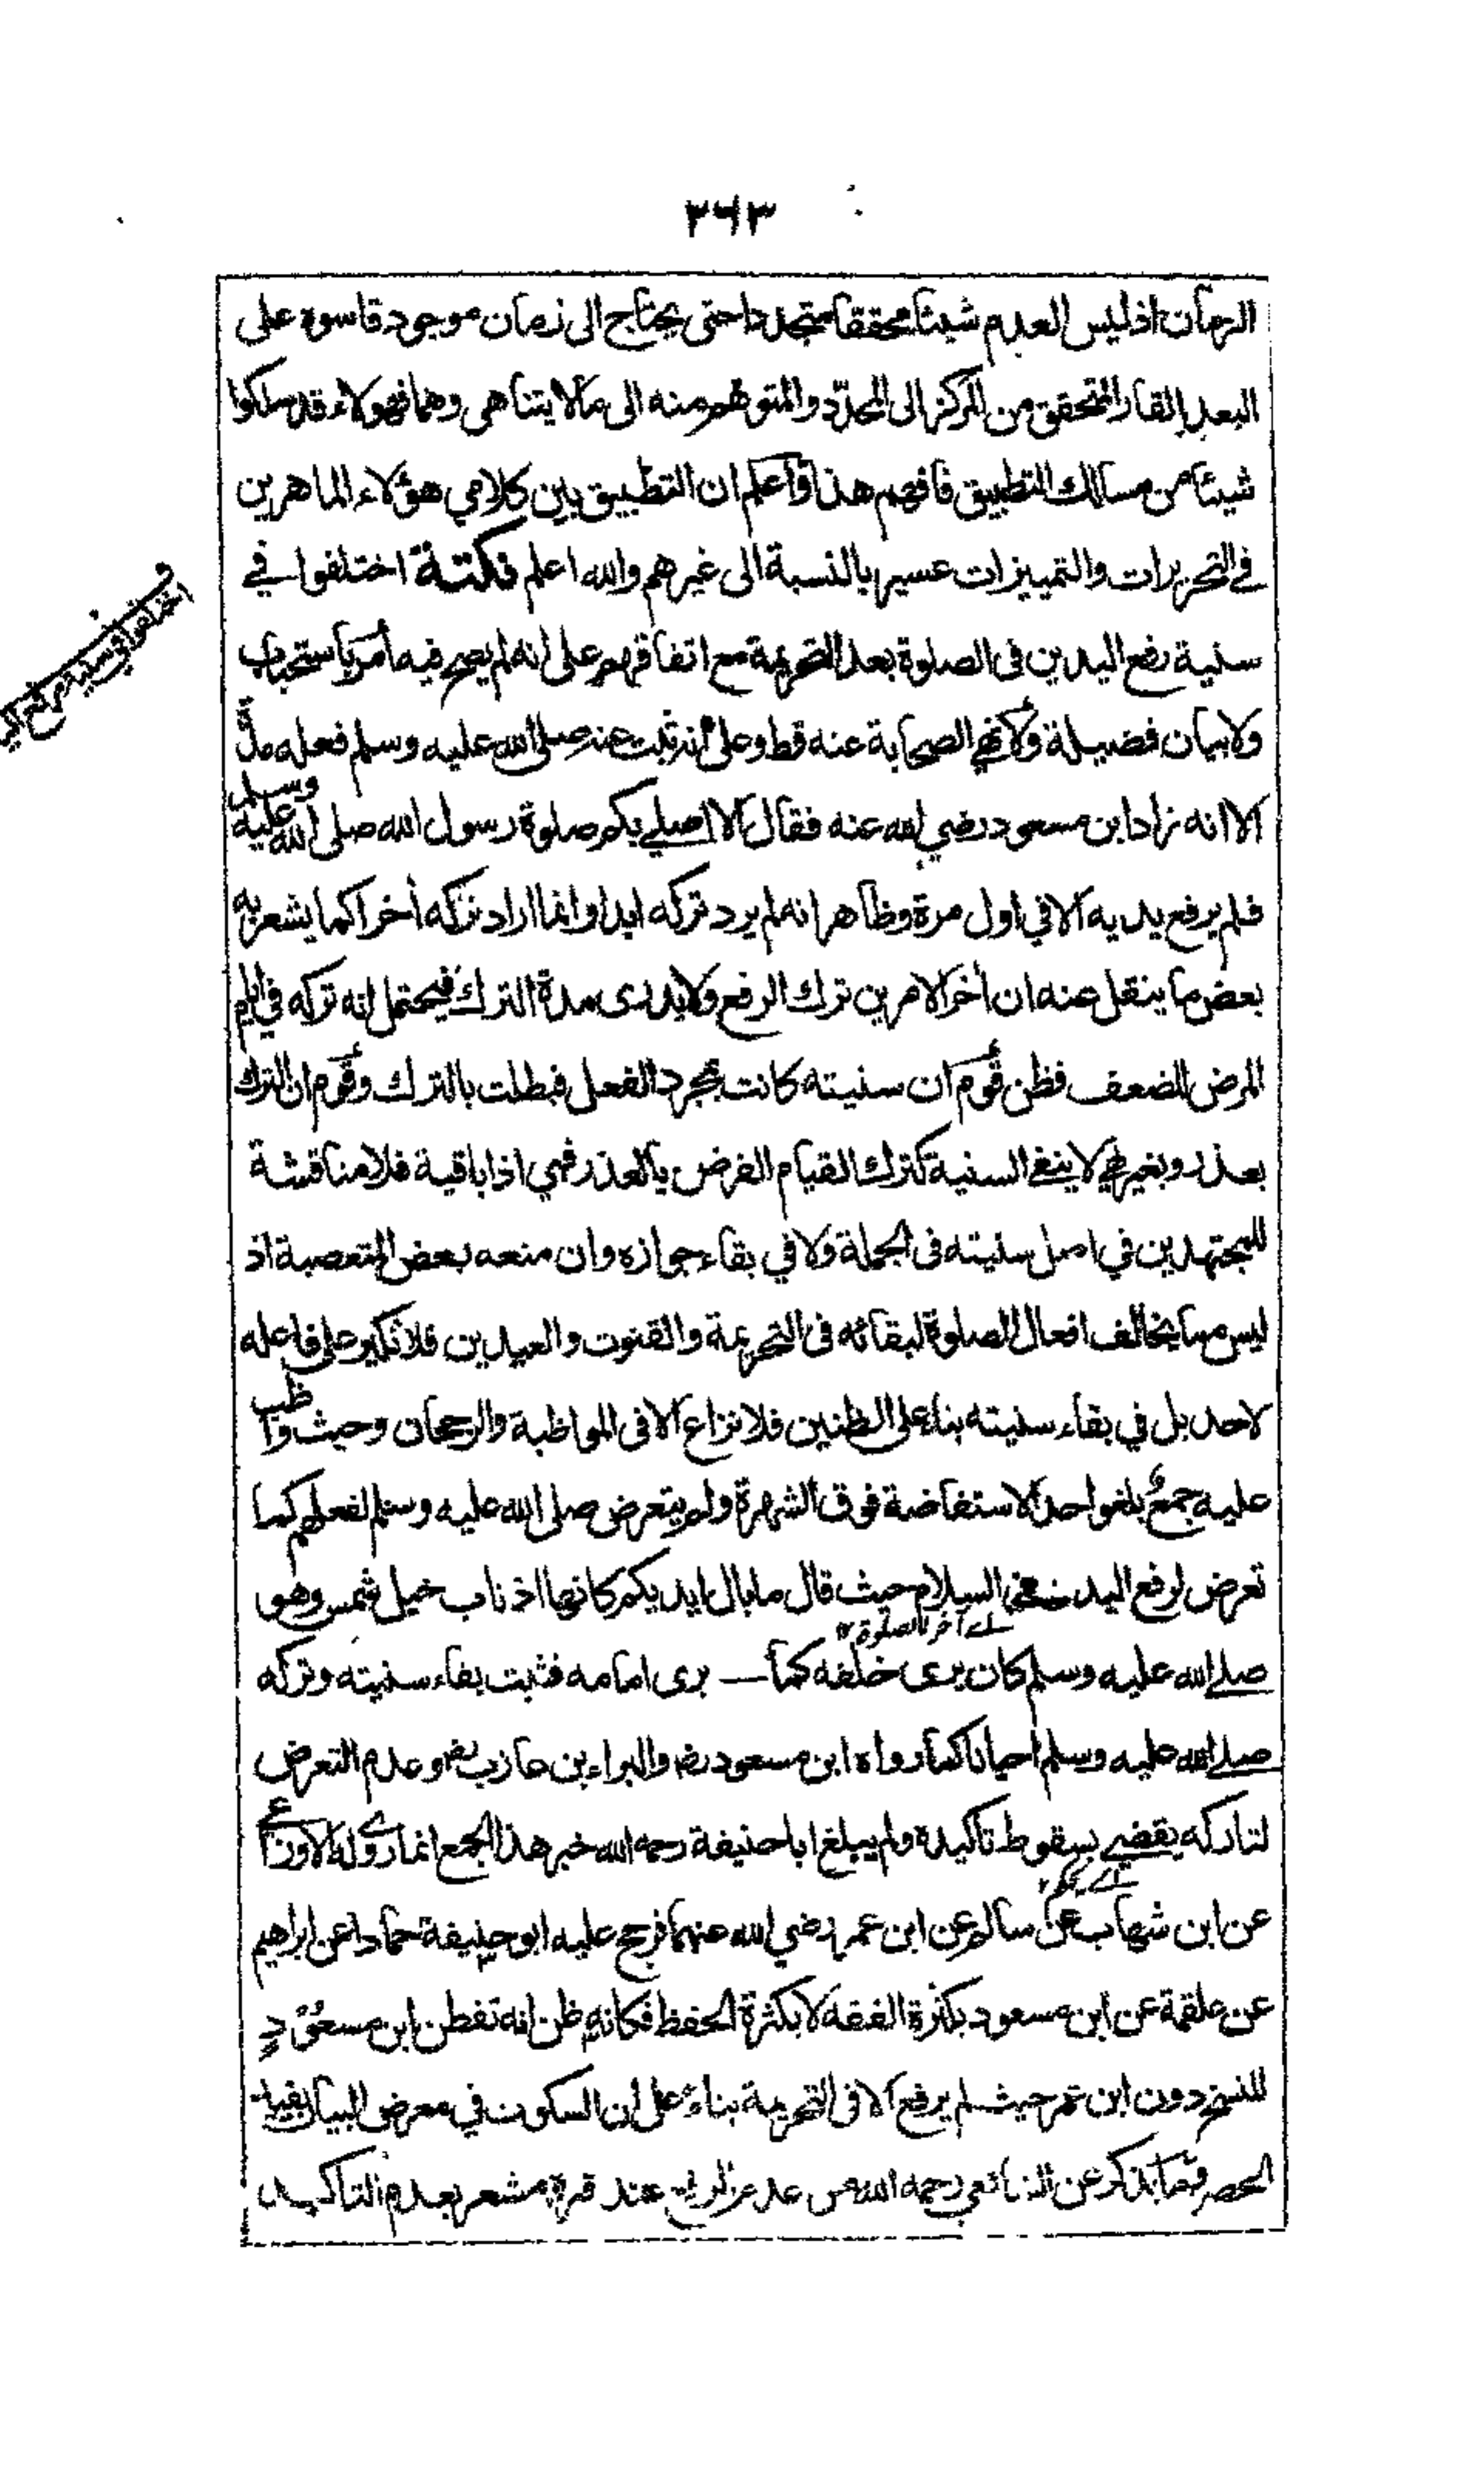 ٣٦٣
الزمان اذ ليس العدم شيئا محققا متجددا حتى يحتاج الى زمان موجود قاسوه على
البعد القار المتحقق من المركز الى المحدد والمتوهم منه الى مالا يتناهى وهما فهولاء قد سلكوا
شيئا من مسالك التطبيق فافهم هذا واعلم ان التطبيق بين كلامي هؤلاء الماهرين
في التحريرات والتمييزات عسير بالنسبة الى غيرهم والله اعلم نكتة اختلفوا في
سنية رفع اليدين فى الصلوة بعد التحريمة مع اتفاقهم على انه لم يصح فيه امر باستحباب
ولا بيان فضيلة ولا نهي الصحابة عنه قط وعلى انه ثبت عنه صلى الله عليه وسلم فعله مدة
الا انه زاد ابن مسعود رضي الله عنه فقال الا اصلي بكم صلوة رسول الله صلى الله عليه وسلم
فلم يرفع يديه الا في اول مرة وظاهر انه لم يرد تركه ابدا وانما اراد تركه أخرا كما يشعر به
بعض ما ينقل عنه ان أخر الامرين ترك الرفع ولا يدرى مدة الترك فيحتمل انه تركه في ايام
المرض للضعف فظن قوم ان سنيته كانت بمجرد الفعل فبطلت بالترك وقوم ان الترك
بعذر وبغيره لا ينفي السنية كترك القيام الفرض بالعذر فهي اذا باقية فلا مناقشة
للمجتهدين في اصل سنيته فى الجملة ولا في بقاء جوازه وان منعه بعض المتعصبة اذ
ليس مما يخالف افعال الصلوة لبقائه فى التحريمة والقنوت والعيدين فلا نكير على فاعله
لاحد بل في بقاء سنيته بناء على الظنين فلا نزاع الا فى المواظبة والرجحان وحيث واظب
عليه جمع بلغوا حد الاستفاضة فوق الشهرة ولم يتعرض صلى الله عليه وسلم لفعلهم كما
تعرض لرفع اليد في السلام حيث قال ما بال ايديكم كانها اذناب خيل شمس وهو
اے آخر الصلوة ١٢
صلے الله عليه وسلم كان يرى خلفه كما يرى امامه فثبت بقاء سنيته وتركه
صلے الله عليه وسلم احيانا كما رواه ابن مسعود رضـ والبراء بن عازب رضـ وعدم التعرض
لتاركه يقضي بسقوط تاكيده ولم يبلغ ابا حنيفة رحمه الله خبر هذا الجمع انما روى له الاوزاعي
عن ابن شهاب عن سالم عن ابن عمر رضي الله عنهما فرجح عليه ابو حنيفة حمادا عن ابراهيم
عن علقمة عن ابن مسعود بكثرة الفقه لا بكثرة الحفظ فكانه ظن انه تفطن ابن مسعود
للنسخ دون ابن عمر حيث لم يرفع الا فى التحريمة بناء على ان السكوت في معرض البيان يفيد
الحصر وما يذكر عن الشافعي رحمه الله من عدم الرفع عند قبره مشعر بعدم التاكيد